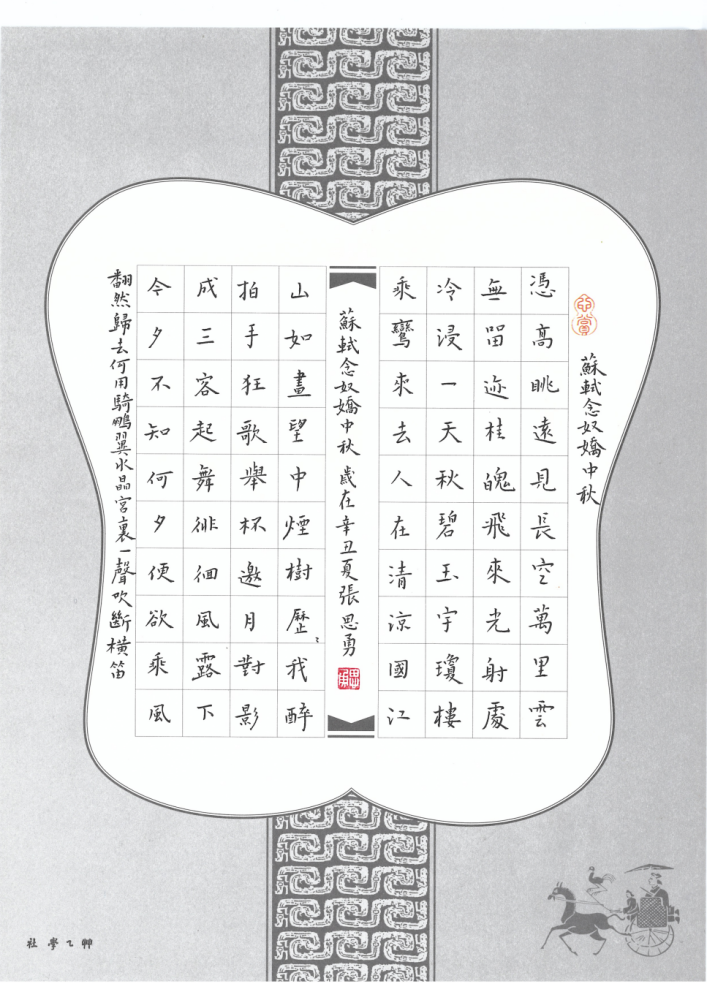 蘇軾念奴嬌中秋
憑高眺遠見長空萬里雲
無留迹桂魄飛來光射處
冷浸一天秋碧玉宇瓊樓
乘鸞來去人在清涼國江
蘇軾念奴嬌中秋歲在辛丑夏張思勇
山如畫望中煙樹歷〻我醉
拍手狂歌舉杯邀月對影
成三客起舞徘徊風露下
今夕不知何夕便欲乘風
翻然歸去何用騎鵬翼水晶宮裏一聲吹斷橫笛
艸乙學社